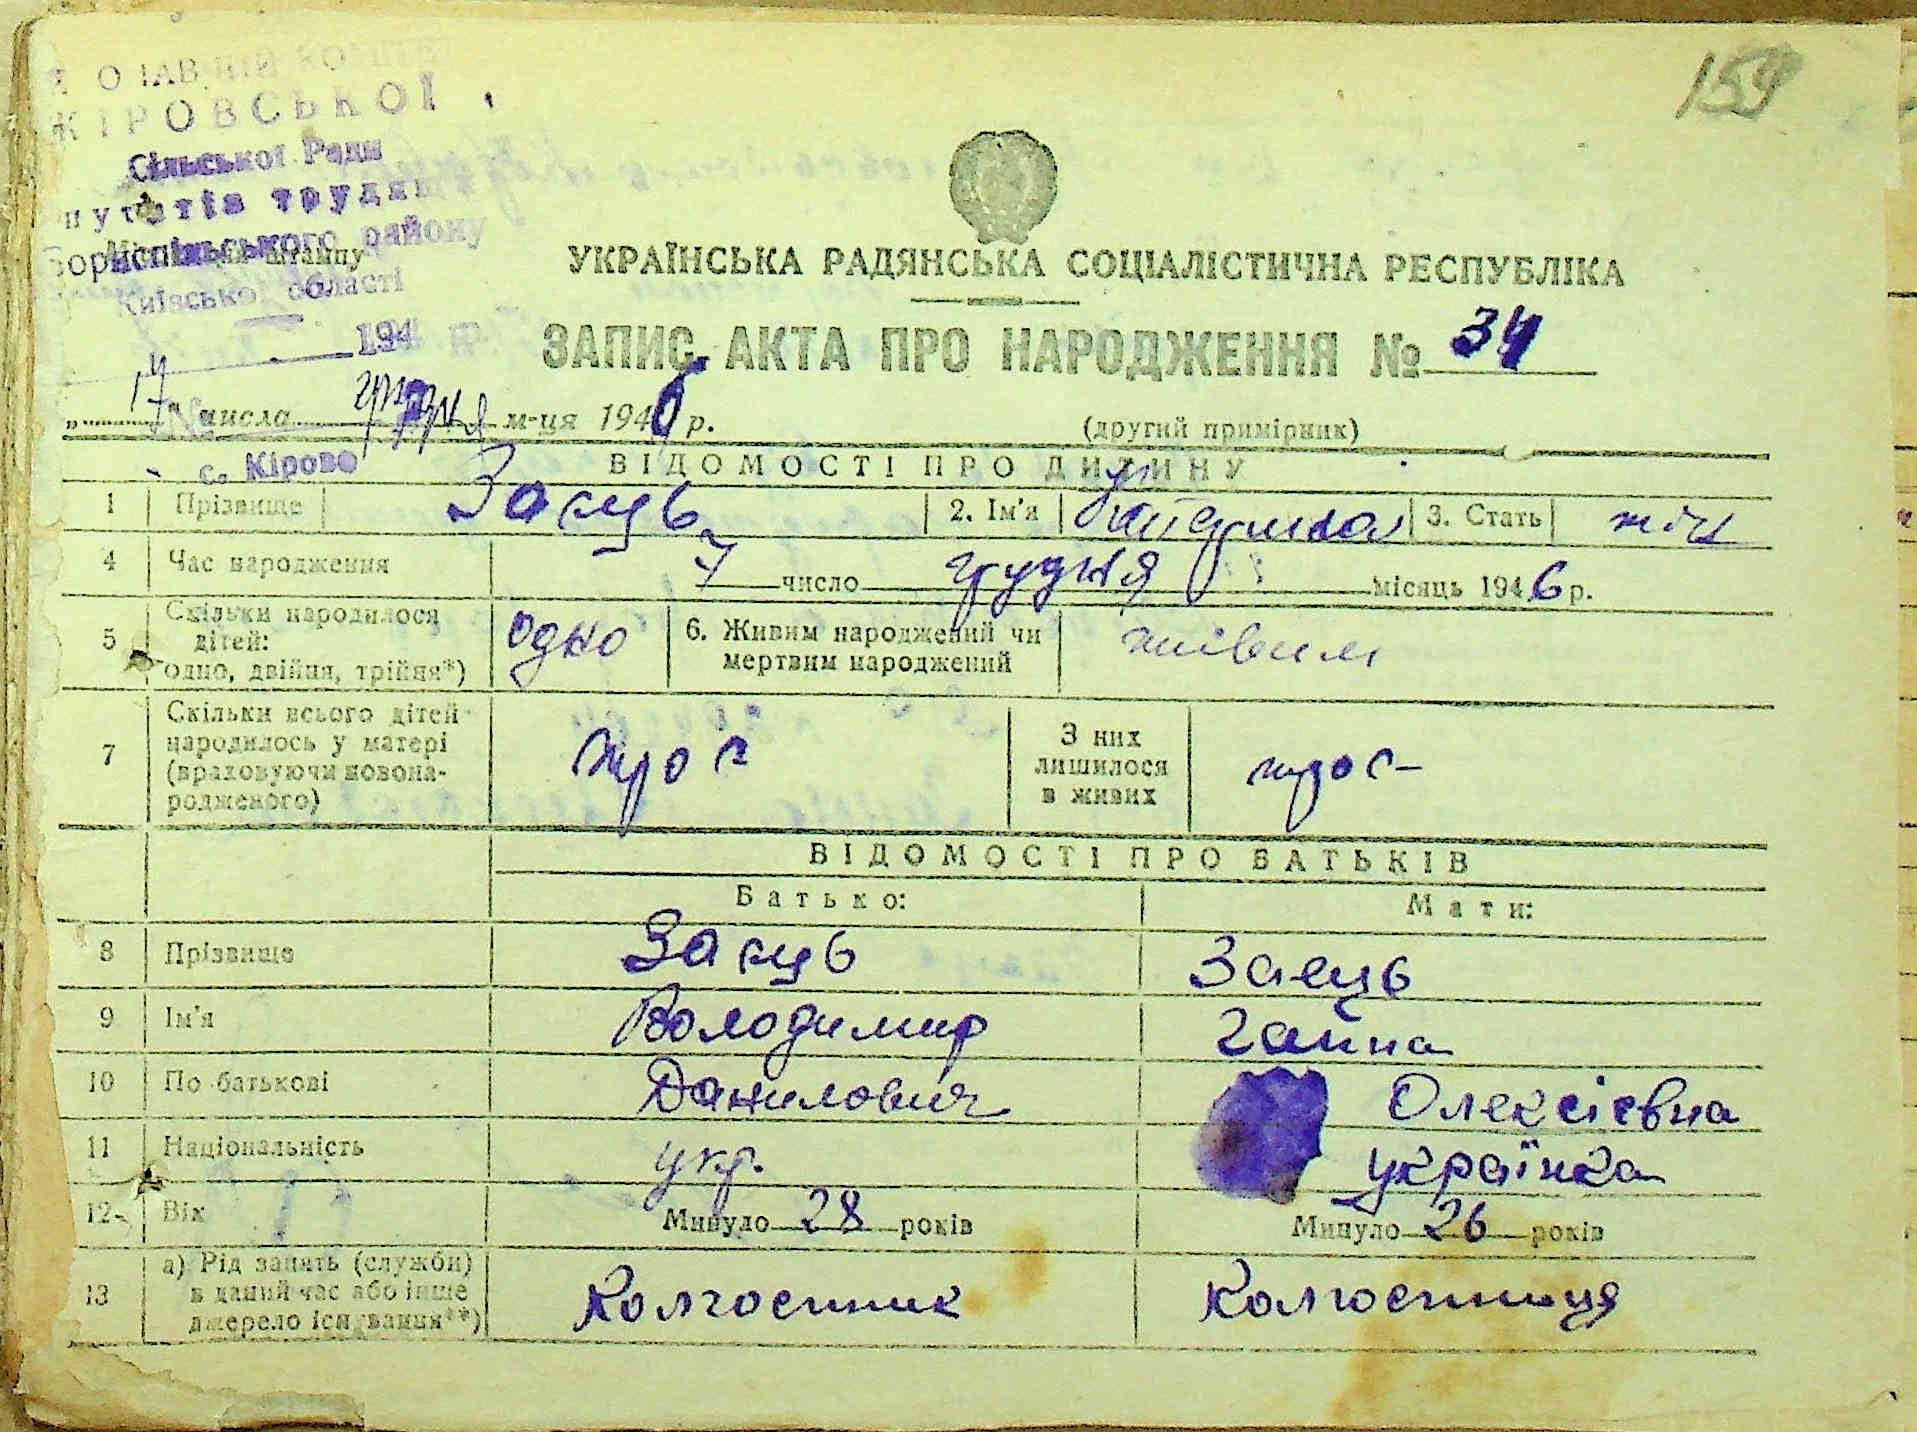 159
КІРОВСЬКОЇ
Сільської Ради
путатів трудящ
Бориспільського району
Місце штампу
Київської області
194 р.
УКРАЇНСЬКА РАДЯНСЬКА СОЦІАЛІСТИЧНА РЕСПУБЛІКА
ЗАПИС АКТА ПРО НАРОДЖЕННЯ № 34
„17" числа грудня м-ця 1946 р.
(другий примірник)
с. Кірове
ВІДОМОСТІ ПРО ДИТИНУ
1 Прізвище Заєць 2. Ім'я 3. Стать жін
4 Час народження 7 число грудня місяць 1946 р.
5 Скільки народилося дітей: одно, двійня, трійня*) одно 6. Живим народжений чи мертвим народжений живим
7 Скільки всього дітей народилось у матері (враховуючи новонародженого) троє З них лишилося в живих троє
ВІДОМОСТІ ПРО БАТЬКІВ
Батько: Мати:
8 Прізвище Заєць Заєць
9 Ім'я Володимир Ганна
10 По батькові Данилович Олексієвна
11 Національність укр. українка
12 Вік Минуло 28 років Минуло 26 років
13 а) Рід занять (служби) в даний час або інше джерело існування**) Колгоспник Колгоспниця